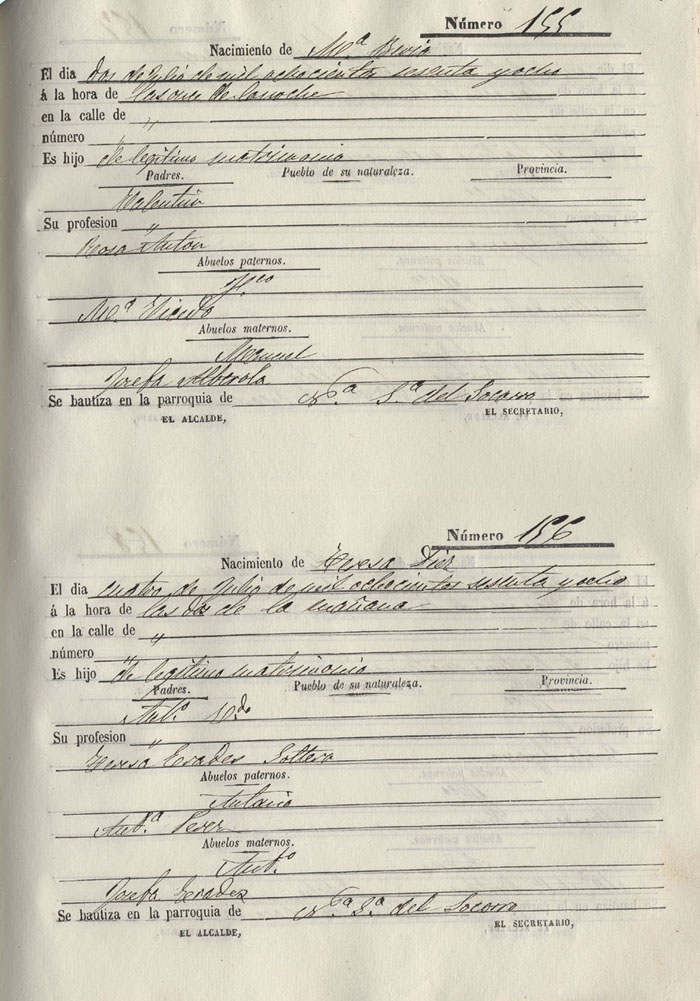 Número 155
Nacimiento de Mª Borja
El dia dos de Julio de mil ochocientos sesenta y ocho
á la hora de las once de la noche
en la calle de "
número "
Es hijo de legitimo matrimonio
Padres. Pueblo de su naturaleza. Provincia.
Valentin
Su profesion "
Rosa Anton
Abuelos paternos.
Fco
Mª Vicedo
Abuelos maternos.
Manuel
Josefa Alberola
Se bautiza en la parroquia de Nª Sª del Socorro
EL ALCALDE, EL SECRETARIO,
Número 156
Nacimiento de Teresa
El dia cuatro de Julio de mil ochocientos sesenta y ocho
á la hora de las dos de la mañana
en la calle de "
número "
Es hijo de legitimo matrimonio
Padres. Pueblo de su naturaleza. Provincia.
Antº
Su profesion "
Teresa Erades
Abuelos paternos.
Antonio
Antª
Abuelos maternos.
Antº
Josefa Erades
Se bautiza en la parroquia de Nª Sª del Socorro
EL ALCALDE, EL SECRETARIO,